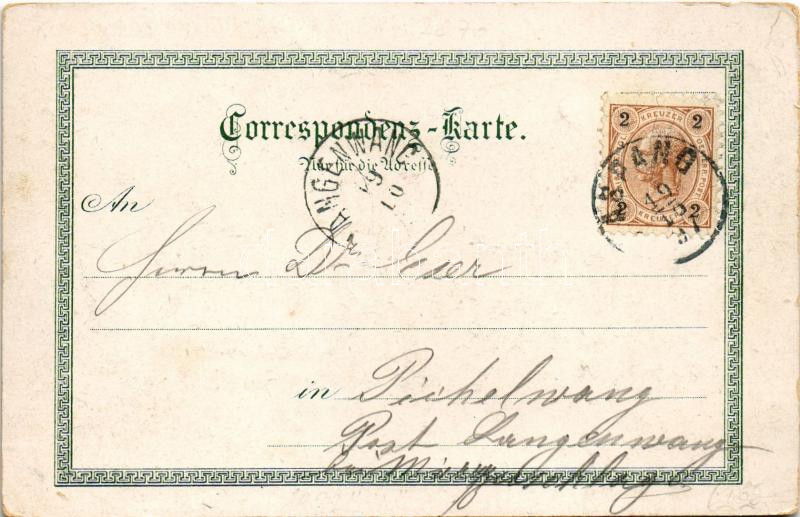 Correspondenz-Karte.
Nur für die Adresse
2 KREUZER 2
2 KREUZER 2
ASPANG
LANGENWANG
An
Herrn Dr
in Pichelwang
Post Langenwang
bei Mürzzuschlag